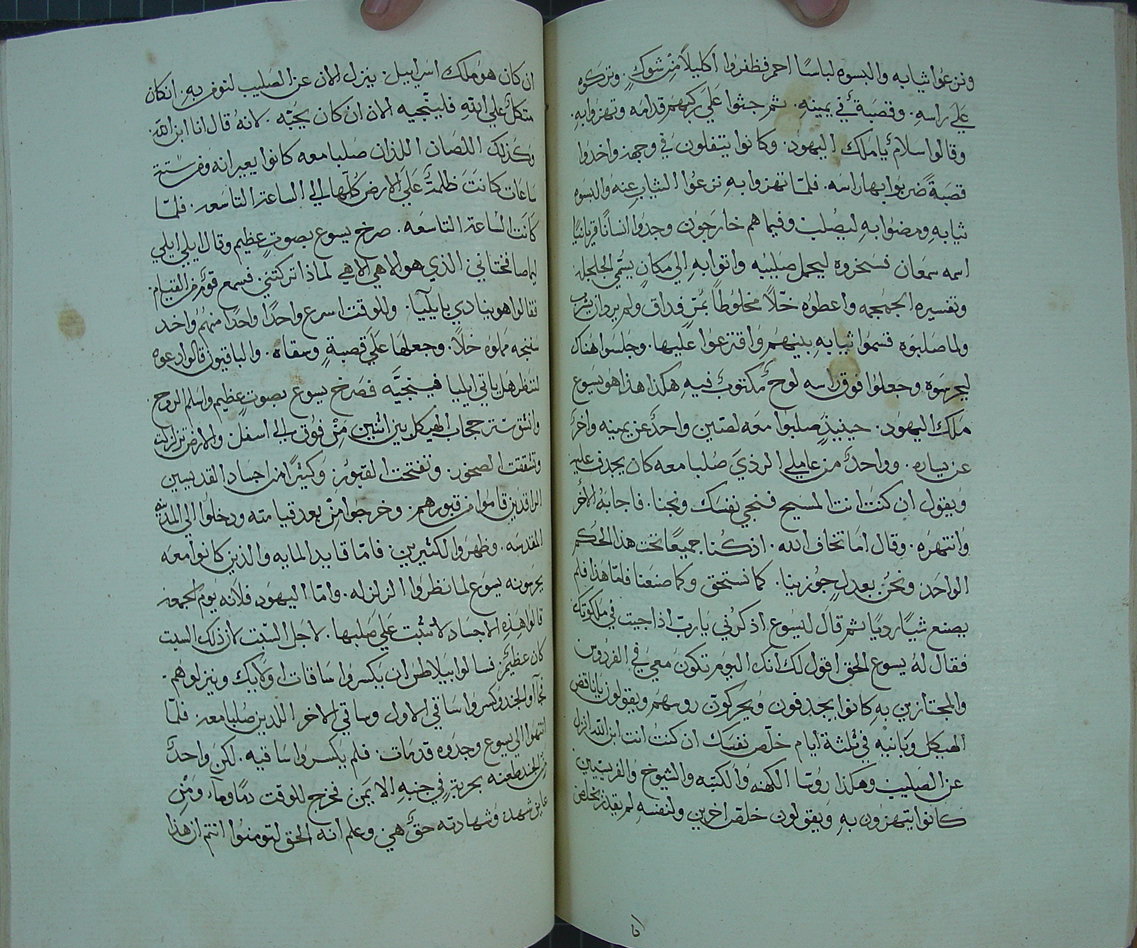 ونزعوا ثيابه والبسوه لباسا احمر فظفروا اكليلاً من شوك. وتركوه
علي راسه. وقصبة في يمينه. ثم جثوا علي ركبهم قدامه وتهزوا به.
وقالوا سلام يا ملك اليهود. وكانوا يتفلون في وجهه واخدوا
قصبةً ضربوا بها راسه. فلما تهزوا به نزعوا الثياب عنه والبسوه
ثيابه ومضوا به ليصلب وفيما هم خارجون وجدوا انسانا قريانيا
اسمه سمعان فسخروه ليحمل صليبه واتوا به الي مكان يسمي الجلجلة
وتفسيره الجمجمه واعطوه خلاً مخلوطاً بمرٍ فداق ولم يرد ان يشرب
ولما صلبوه قسموا ثيابه بينهم واقترعوا عليها. وجلسوا هناك
ليحرسوه وجعلوا فوق راسه لوح مكتوب فيه هكذا هذا هو يسوع
ملك اليهود. حينيذٍ صلبوا معه لصين واحد عن يمينه واخر
عن يساره. وواحد من عاملي الردي صلبا معه كان يجدف عليه
ويقول ان كنت انت المسيح فنجي نفسك ونجنا. فاجابه الاخر
وانتهره. وقال اما تخاف الله. اذ كنا جميعاً تحت هذا الحكم
الواحد ونحن بعدلٍ جوزينا. كما نستحق وكما صنعنا فاما هذا فلم
يصنع شيا رديا ثم قال ليسوع اذكرني يا رب اذا جيت في ملكوتك
فقال له يسوع الحق اقول لك انك اليوم تكون معي في الفردوس
والمجتازين به كانوا يجدفون ويحركون روسهم ويقولون يا ناقض
الهيكل وبانيه في ثلثة ايام خلص نفسك ان كنت انت ابن الله انزل
عن الصليب وهكذا روسا الكهنه والكتبه والشيوخ والفريسيين
كانوا يتهزون به ويقولون خلص اخرين ولنفسه لم يقدر يخلص
ان كان هو ملك اسراييل. ينزل الان عن الصليب لنومن به. ان كان
متكل علي الله فلينجيه الان ان كان يحبه. لانه قال انا ابن الله.
وكذلك اللصان اللذان صلبا معه كانوا يعيرانه ومن ستة
ساعات كانت ظلمة علي الارض كلها الي الساعة التاسعه. فلما
كانت الساعة التاسعه. صرخ يسوع بصوتٍ عظيم وقال ايلي ايلي
لما صافختاني الذي هو الاهي الاهي لماذا تركتني فسمع قوم من القيام
فقالوا هو ينادي بايليا. وللوقت اسرع واحداً واخداً منهم واخد
سفنجه مملوه خلاً. وجعلها علي قصبةٍ وسقاه. والباقيون قالوا دعوه
لننظر هل ياتي ايليا فينجيه فصرخ يسوع بصوتٍ عظيم واسلم الروح
وانشق ستر حجاب الهيكل بين اثنين من فوق الي اسفل والارض تزلزلت
وتشققت الصخور. وتفتحت القبور وكثيراً من اجساد القديسين
الراقدين قاموا من قبورهم. وخرجوا من بعد قيامته ودخلوا الي المدينة
المقدسه. وظهروا لكثيرين. فاما قايد المايه والذين كانوا معه
يحرسونه يسوع لما نظروا الزلزله. واما اليهود فلانه يوم الجمعه
قالوا هذه الاجساد لا تثبت علي صلبها. لاجل السبت لان ذلك السبت
كان عظيمٌ فسالوا بيلاطس ان يكسروا ساقات اولايك وينزلوهم.
فجاو الجند وكسروا ساقي الاول وساقي الاخر اللدين صلبا معه. فلما
انتهوا الي يسوع وجدوه قد مات. فلم يكسروا ساقيه. لكن واحد
من الجند طعنه بحربةٍ في جنبه الايمن فخرج للوقت دما وماء ومن
عاين شهد وشهادته حق هي وعلم انه الحق لتومنوا انتم ان هذا